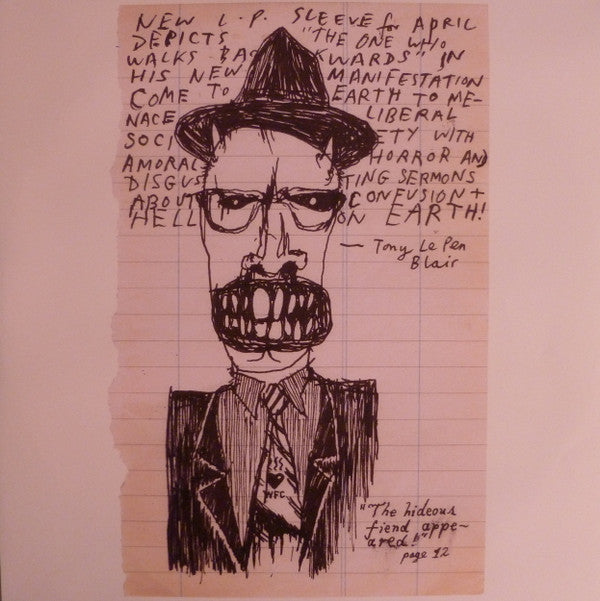 NEW L.P. SLEEVE for APRIL
DEPICTS "THE ONE WHO
WALKS BACKWARDS" IN
HIS NEW MANIFESTATION
COME TO EARTH TO ME-
NACE LIBERAL
SOCIETY WITH
AMORAL HORROR AND
DISGUSTING SERMONS
ABOUT CONFUSION +
HELL ON EARTH!
— Tony Le Pen
Blair
NFC
"The hideous
fiend appe-
ared!"
page 12